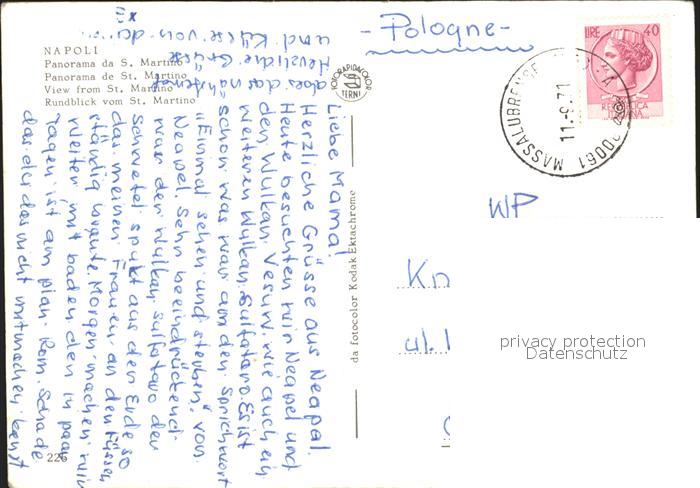 NAPOLI
Panorama da S. Martino
Panorama de St. Martino
View from St. Martino
Rundblick vom St. Martino
FOTORAPIDACOLOR
TERNI
- Pologne -
LIRE 40
REPUBBLICA
ITALIANA
80061 MASSALUBRENSE
11.-9.71
WP
Kn
ul.
privacy protection
Datenschutz
da fotocolor Kodak Ektachrome
226
Liebe Mama!
Herzliche Grüsse aus Neapel.
Heute besuchten wir Neapel und
den Wulkan Vesuw. wie auch ein
weiteren Wulkan. Sulfataro. Es ist
schon was war an den Sprichwort
"Einmal sehen und sterben", von
Neapel. Sehr beeindrückend
war der Wulkan sulfataro der
Schwefel spukt aus den Erde so
das meinen Frauen an den Füssen
ständig brante. Morgen machen wir
weiter mit baden den in paar
Tagen ist am plan. Rom. Schade
das du das nicht mitmachen kanst
aber das nächste
Herzliche Grüsse
und Küsse von